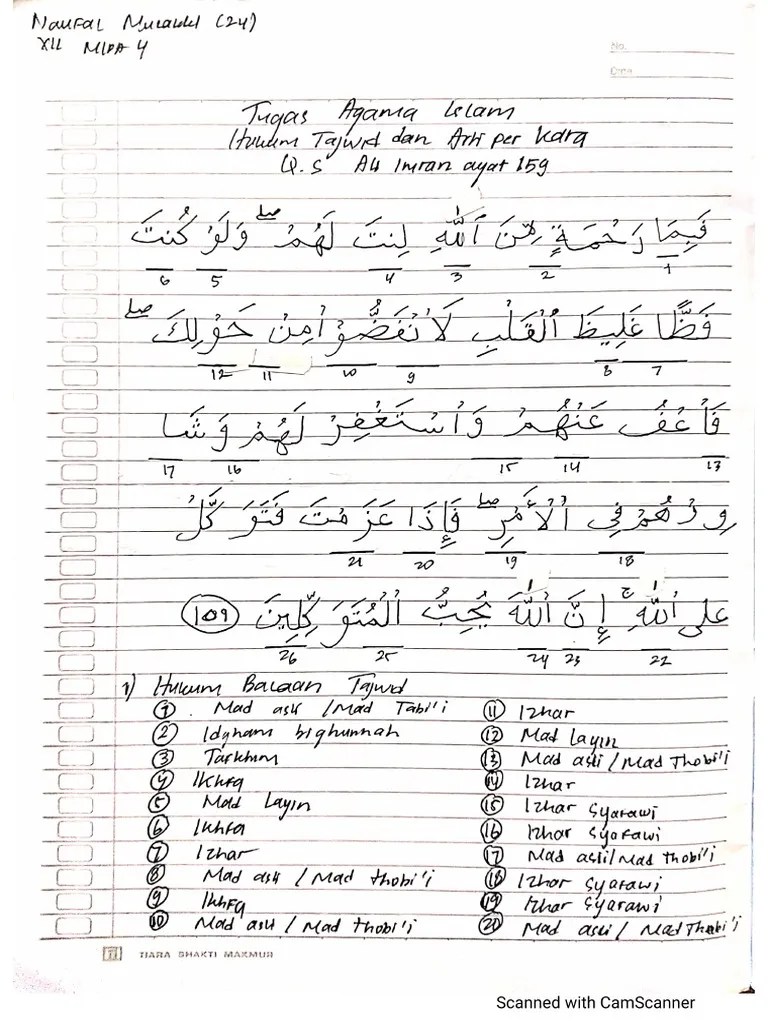 Naufal Murabbi (24)
XII MIPA 4
No.
Date
Tugas Agama Islam
Hukum Tajwid dan Arti per kara
Q.S Ali Imran ayat 159
فَبِمَا رَحْمَةٍ مِّنَ ٱللَّهِ لِنتَ لَهُمْ ۖ وَلَوْ كُنتَ
6 5 4 3 2 1
فَظًّا غَلِيظَ ٱلْقَلْبِ لَانْفَضُّوْا مِنْ حَوْلِكَ ۖ
12 11 10 9 8 7
فَاْعْفُ عَنْهُمْ وَاْسْتَغْفِرْ لَهُمْ وَشَا
17 16 15 14 13
وِرْهُمْ فِي الْأَمْرِ ۖ فَإِذَا عَزَمْتَ فَتَوَ كَّلْ
21 20 19 18
عَلَى ٱللَّهِ ۚ إِنَّ ٱللَّهَ يُحِبُّ الْمُتَوَ كِّلِينَ (159)
26 25 24 23 22
1) Hukum Bacaan Tajwid
① Mad asli / Mad Tabi'i
② Idgham bighunnah
③ Tafkhim
④ Ikhfa
⑤ Mad Layin
⑥ Ikhfa
⑦ Izhar
⑧ Mad asli / Mad thobi'i
⑨ Ikhfa
⑩ Mad asli / Mad Thobi'i
⑪ Izhar
⑫ Mad layin
⑬ Mad asli / Mad Thobi'i
⑭ Izhar
⑮ Izhar Syafawi
⑯ Izhar syafawi
⑰ Mad asli/Mad thobi'i
⑱ Izhar syafawi
⑲ Izhar Syafawi
⑳ Mad asli / Mad Thobi'i
TIARA BHAKTI MAKMUR
Scanned with CamScanner